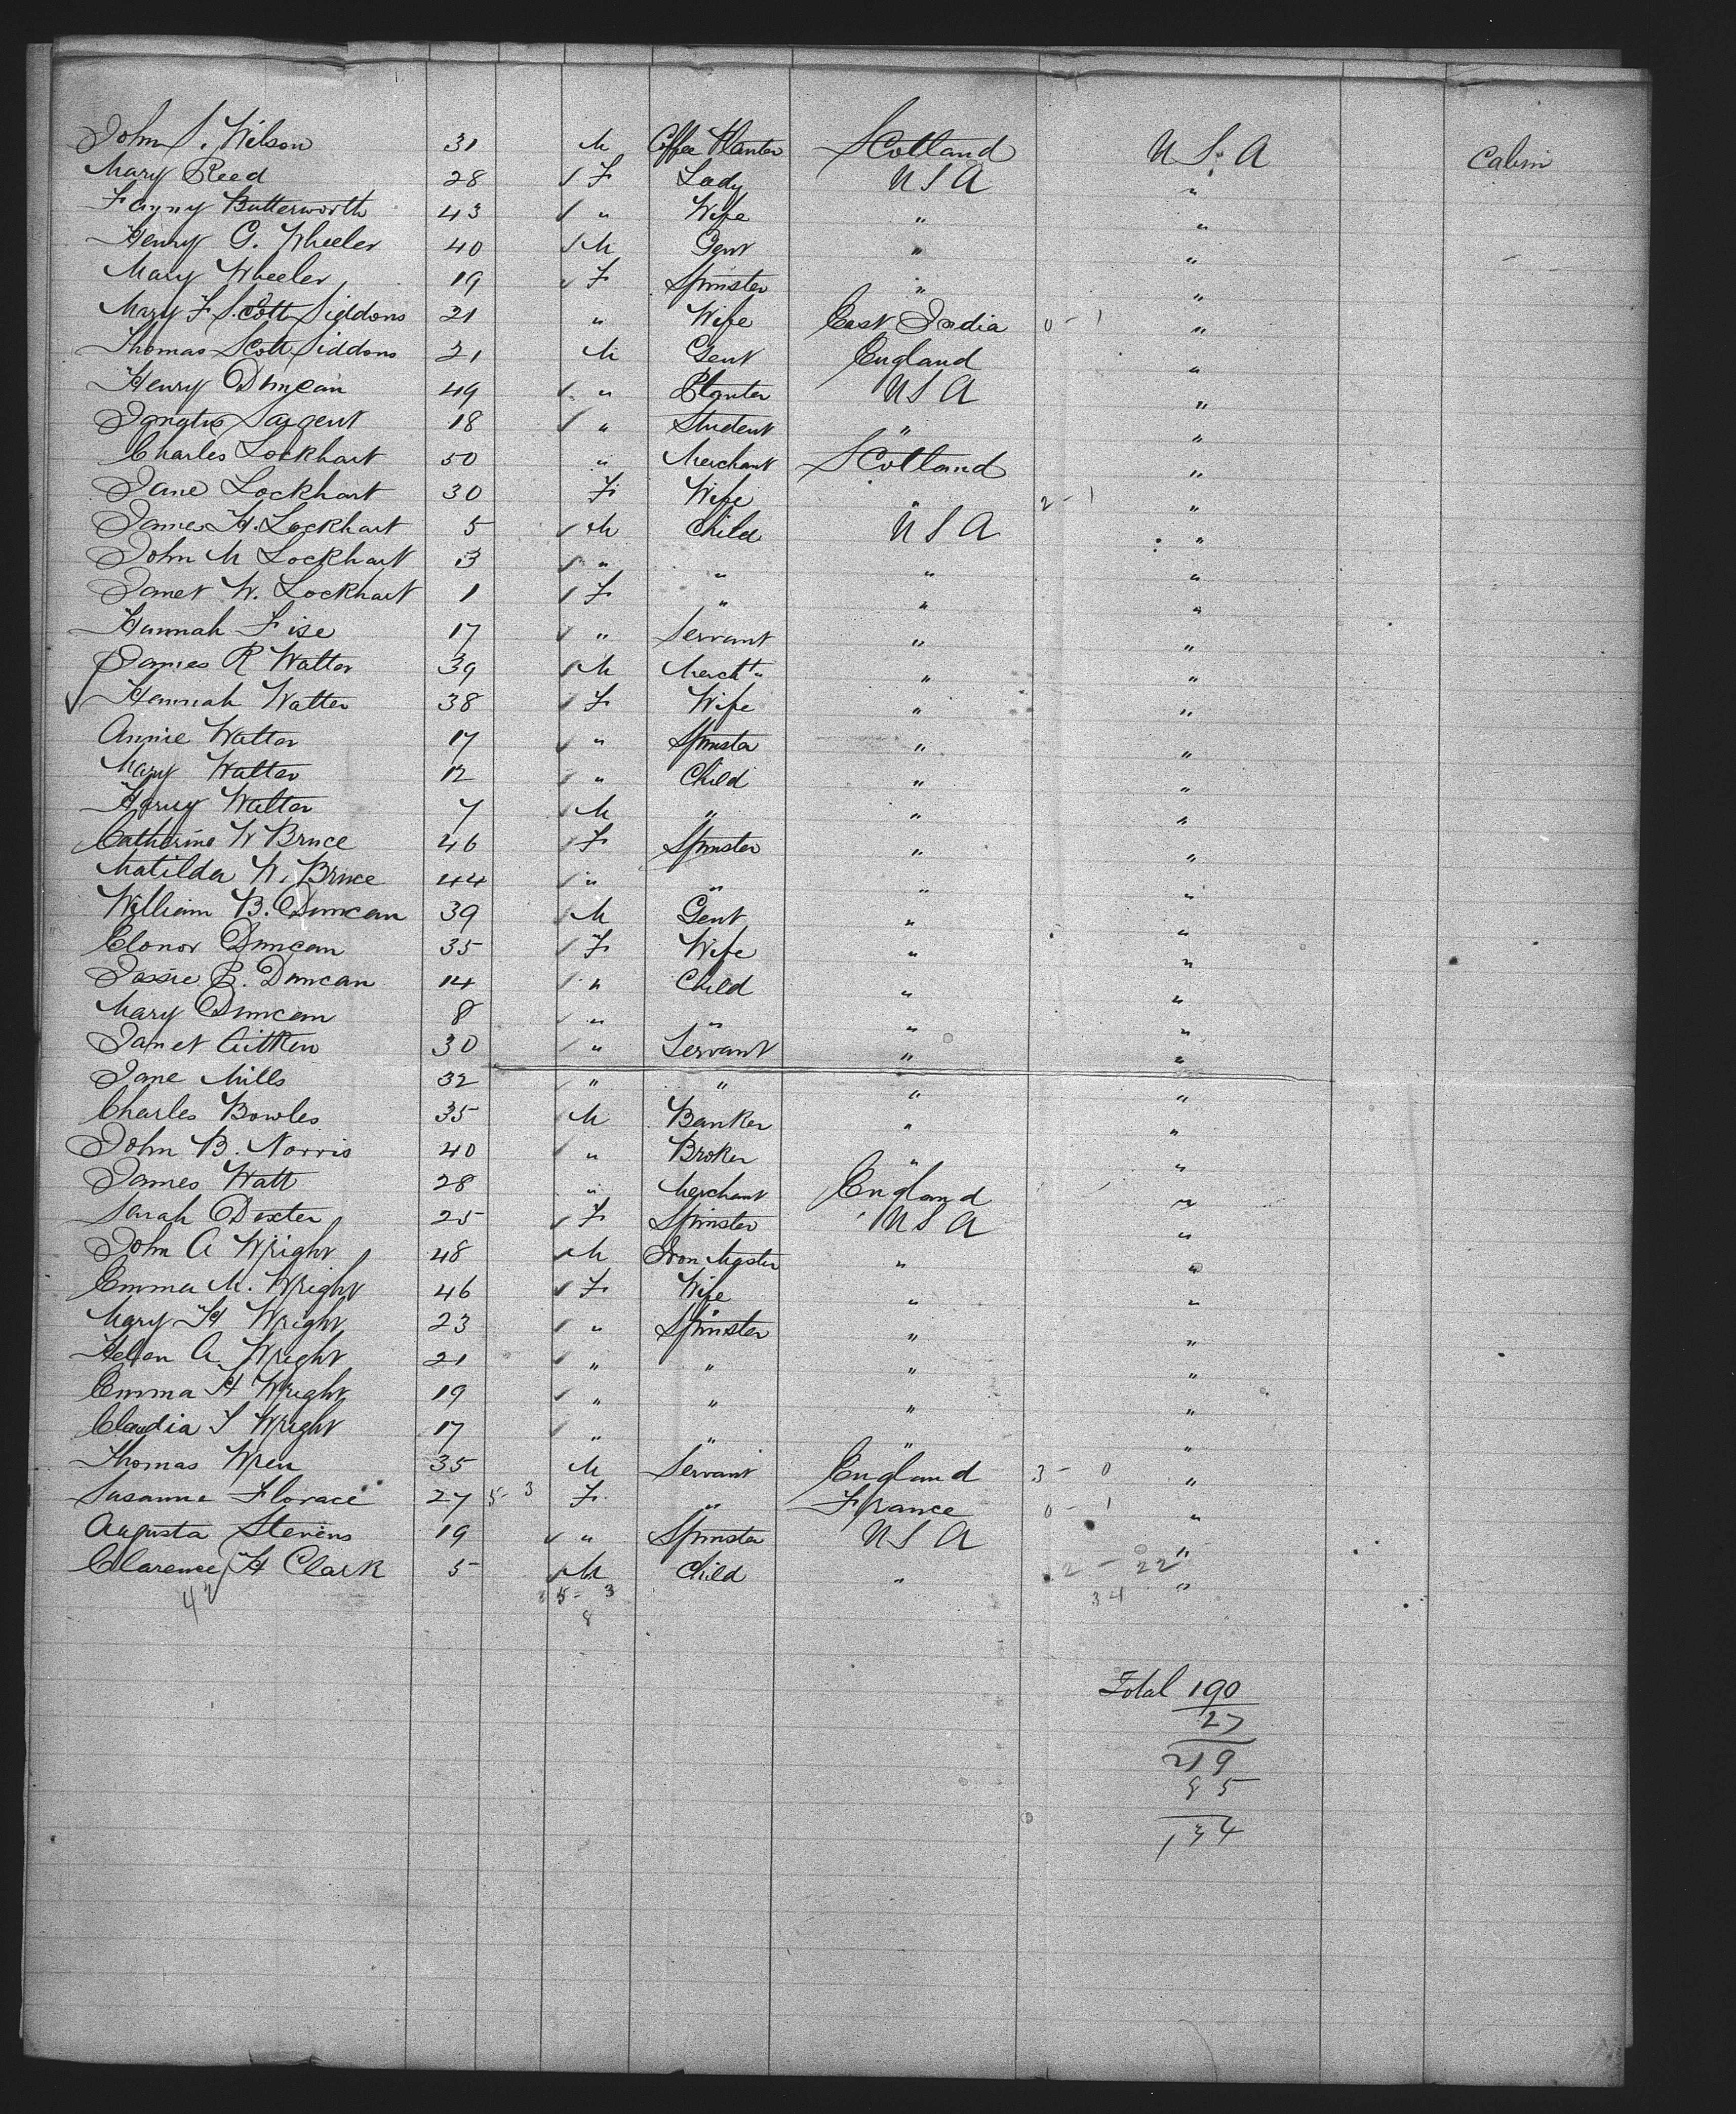 John S. Wilson 31 M Coffee Planter Scotland U S A Cabin
Mary Reed 28 F Lady U S A "
Fanny Butterworth 43 " Wife " "
Henry G. Wheeler 40 M Gent " "
Mary Wheeler 19 F Spinster " "
Mary F Scott Siddons 21 " Wife East India 0 - 1 "
Thomas Scott Siddons 21 M Gent England "
Henry Duncan 49 " Planter U S A "
Sargent 18 " Student " "
Charles Lockhart 50 " Merchant Scotland "
Jane Lockhart 30 F Wife " 2 - 1 "
James H. Lockhart 5 M Child U S A "
John M Lockhart 3 " " " "
Janet W. Lockhart 1 F " " "
Hannah Fise 17 " Servant " "
James R Walter 39 M Mercht " "
Hannah Walter 38 F Wife " "
Annie Walter 17 " Spinster " "
Mary Walter 12 " Child " "
Harry Walter 7 M " " "
Catherine W Bruce 46 F Spinster " "
Matilda W. Bruce 44 " " " "
William B. Duncan 39 M Gent " "
Elonor Duncan 35 F Wife " "
Jessie E. Duncan 14 " Child " "
Mary Duncan 8 " " " "
Janet Aitken 30 " Servant " "
Jane Mills 32 " " " "
Charles Bowles 35 M Banker " "
John B. Norris 40 " Broker " "
James Watt 28 " Merchant England "
Sarah Dexter 25 F Spinster U S A "
John A Wright 48 M Iron Master " "
Emma M. Wright 46 F Wife " "
Mary H Wright 23 " Spinster " "
Helen A. Wright 21 " " " "
Emma H Wright 19 " " " "
Claudia S Wright 17 " " " "
Thomas Wren 35 M Servant England 3 - 0 "
Susanne Florace 27 5 - 3 F " France 0 - 1 "
Augusta Stevens 19 " Spinster U S A "
Clarence H Clark 5 M Child " 2 - 22 "
42 5 - 3 34
8
Total 190
27
219
85
134